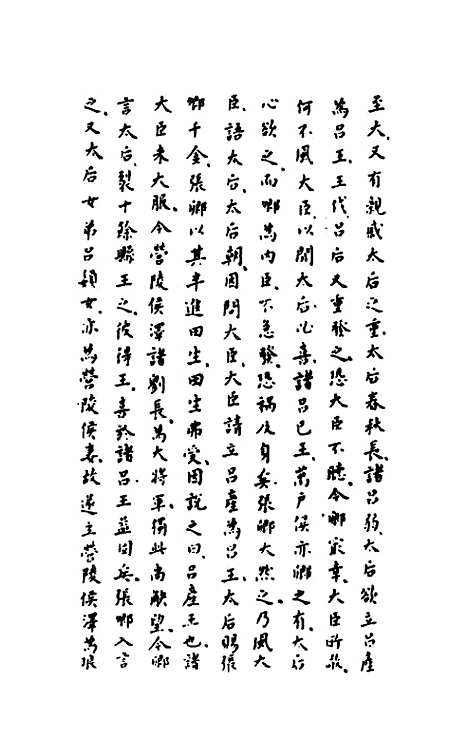 至大又有親戚太后之重太后春秋長諸呂弱太后欲立呂產
爲呂王王代呂后又重發之恐大臣不聽今卿最幸大臣所敬
何不風大臣以聞太后太后必喜諸呂已王萬戶侯亦卿之有太后
心欲之而卿爲內臣不急發恐禍及身矣張卿大然之乃風大
臣語太后太后朝因問大臣大臣請立呂產爲呂王太后賜張
卿千金張卿以其半進田生田生弗受因說之曰呂產王也諸
大臣未大服今營陵侯澤諸劉長爲大將軍獨此尚觖望今卿
言太后裂十餘縣王之彼得王喜於諸呂王益固矣張卿入言
之又太后女弟呂嬃女亦爲營陵侯妻故遂立營陵侯澤爲琅